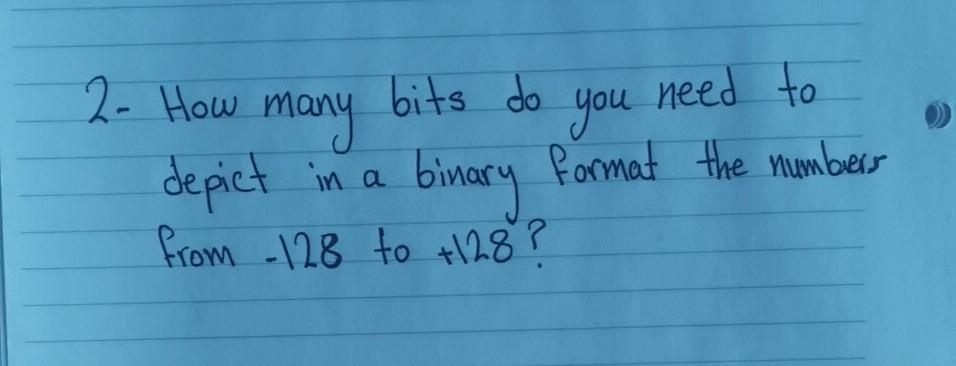 2- How many bits do you need to
depict in a binary format the numbers
from -128 to +128?